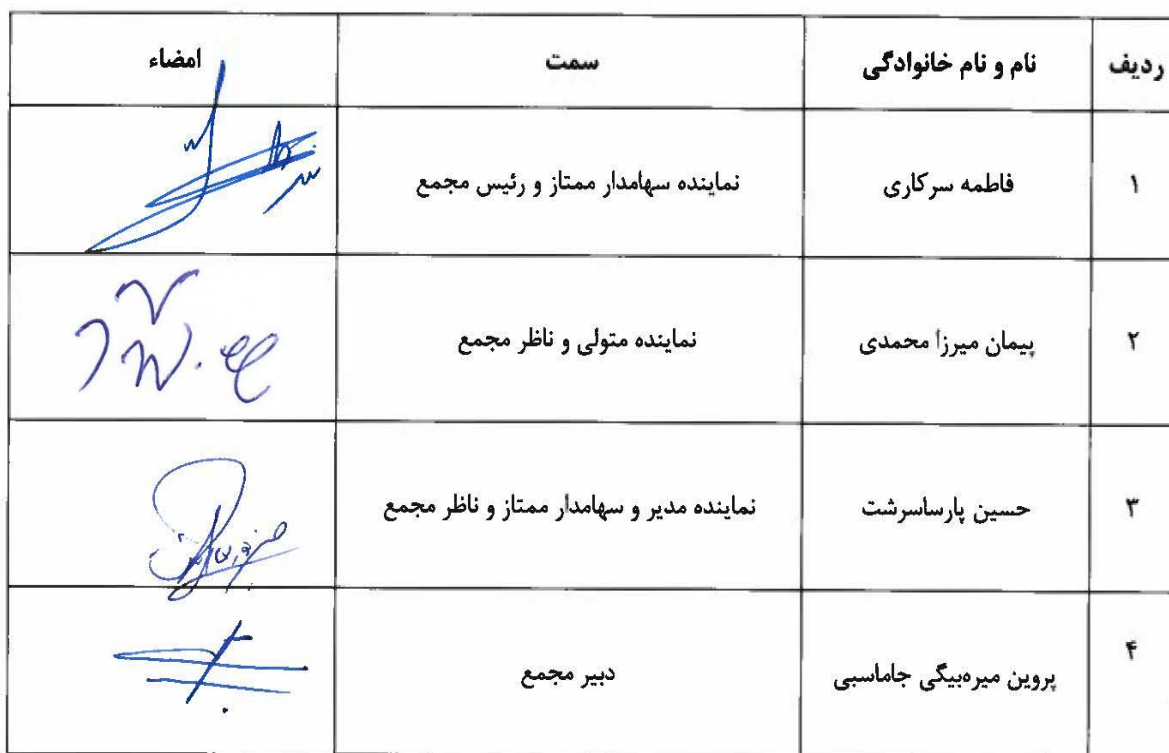 ردیف نام و نام خانوادگی سمت امضاء
۱ فاطمه سرکاری نماینده سهامدار ممتاز و رئیس مجمع
۲ پیمان میرزا محمدی نماینده متولی و ناظر مجمع
۳ حسین پارساسرشت نماینده مدیر و سهامدار ممتاز و ناظر مجمع
۴ پروین میره‌بیگی جاماسبی دبیر مجمع